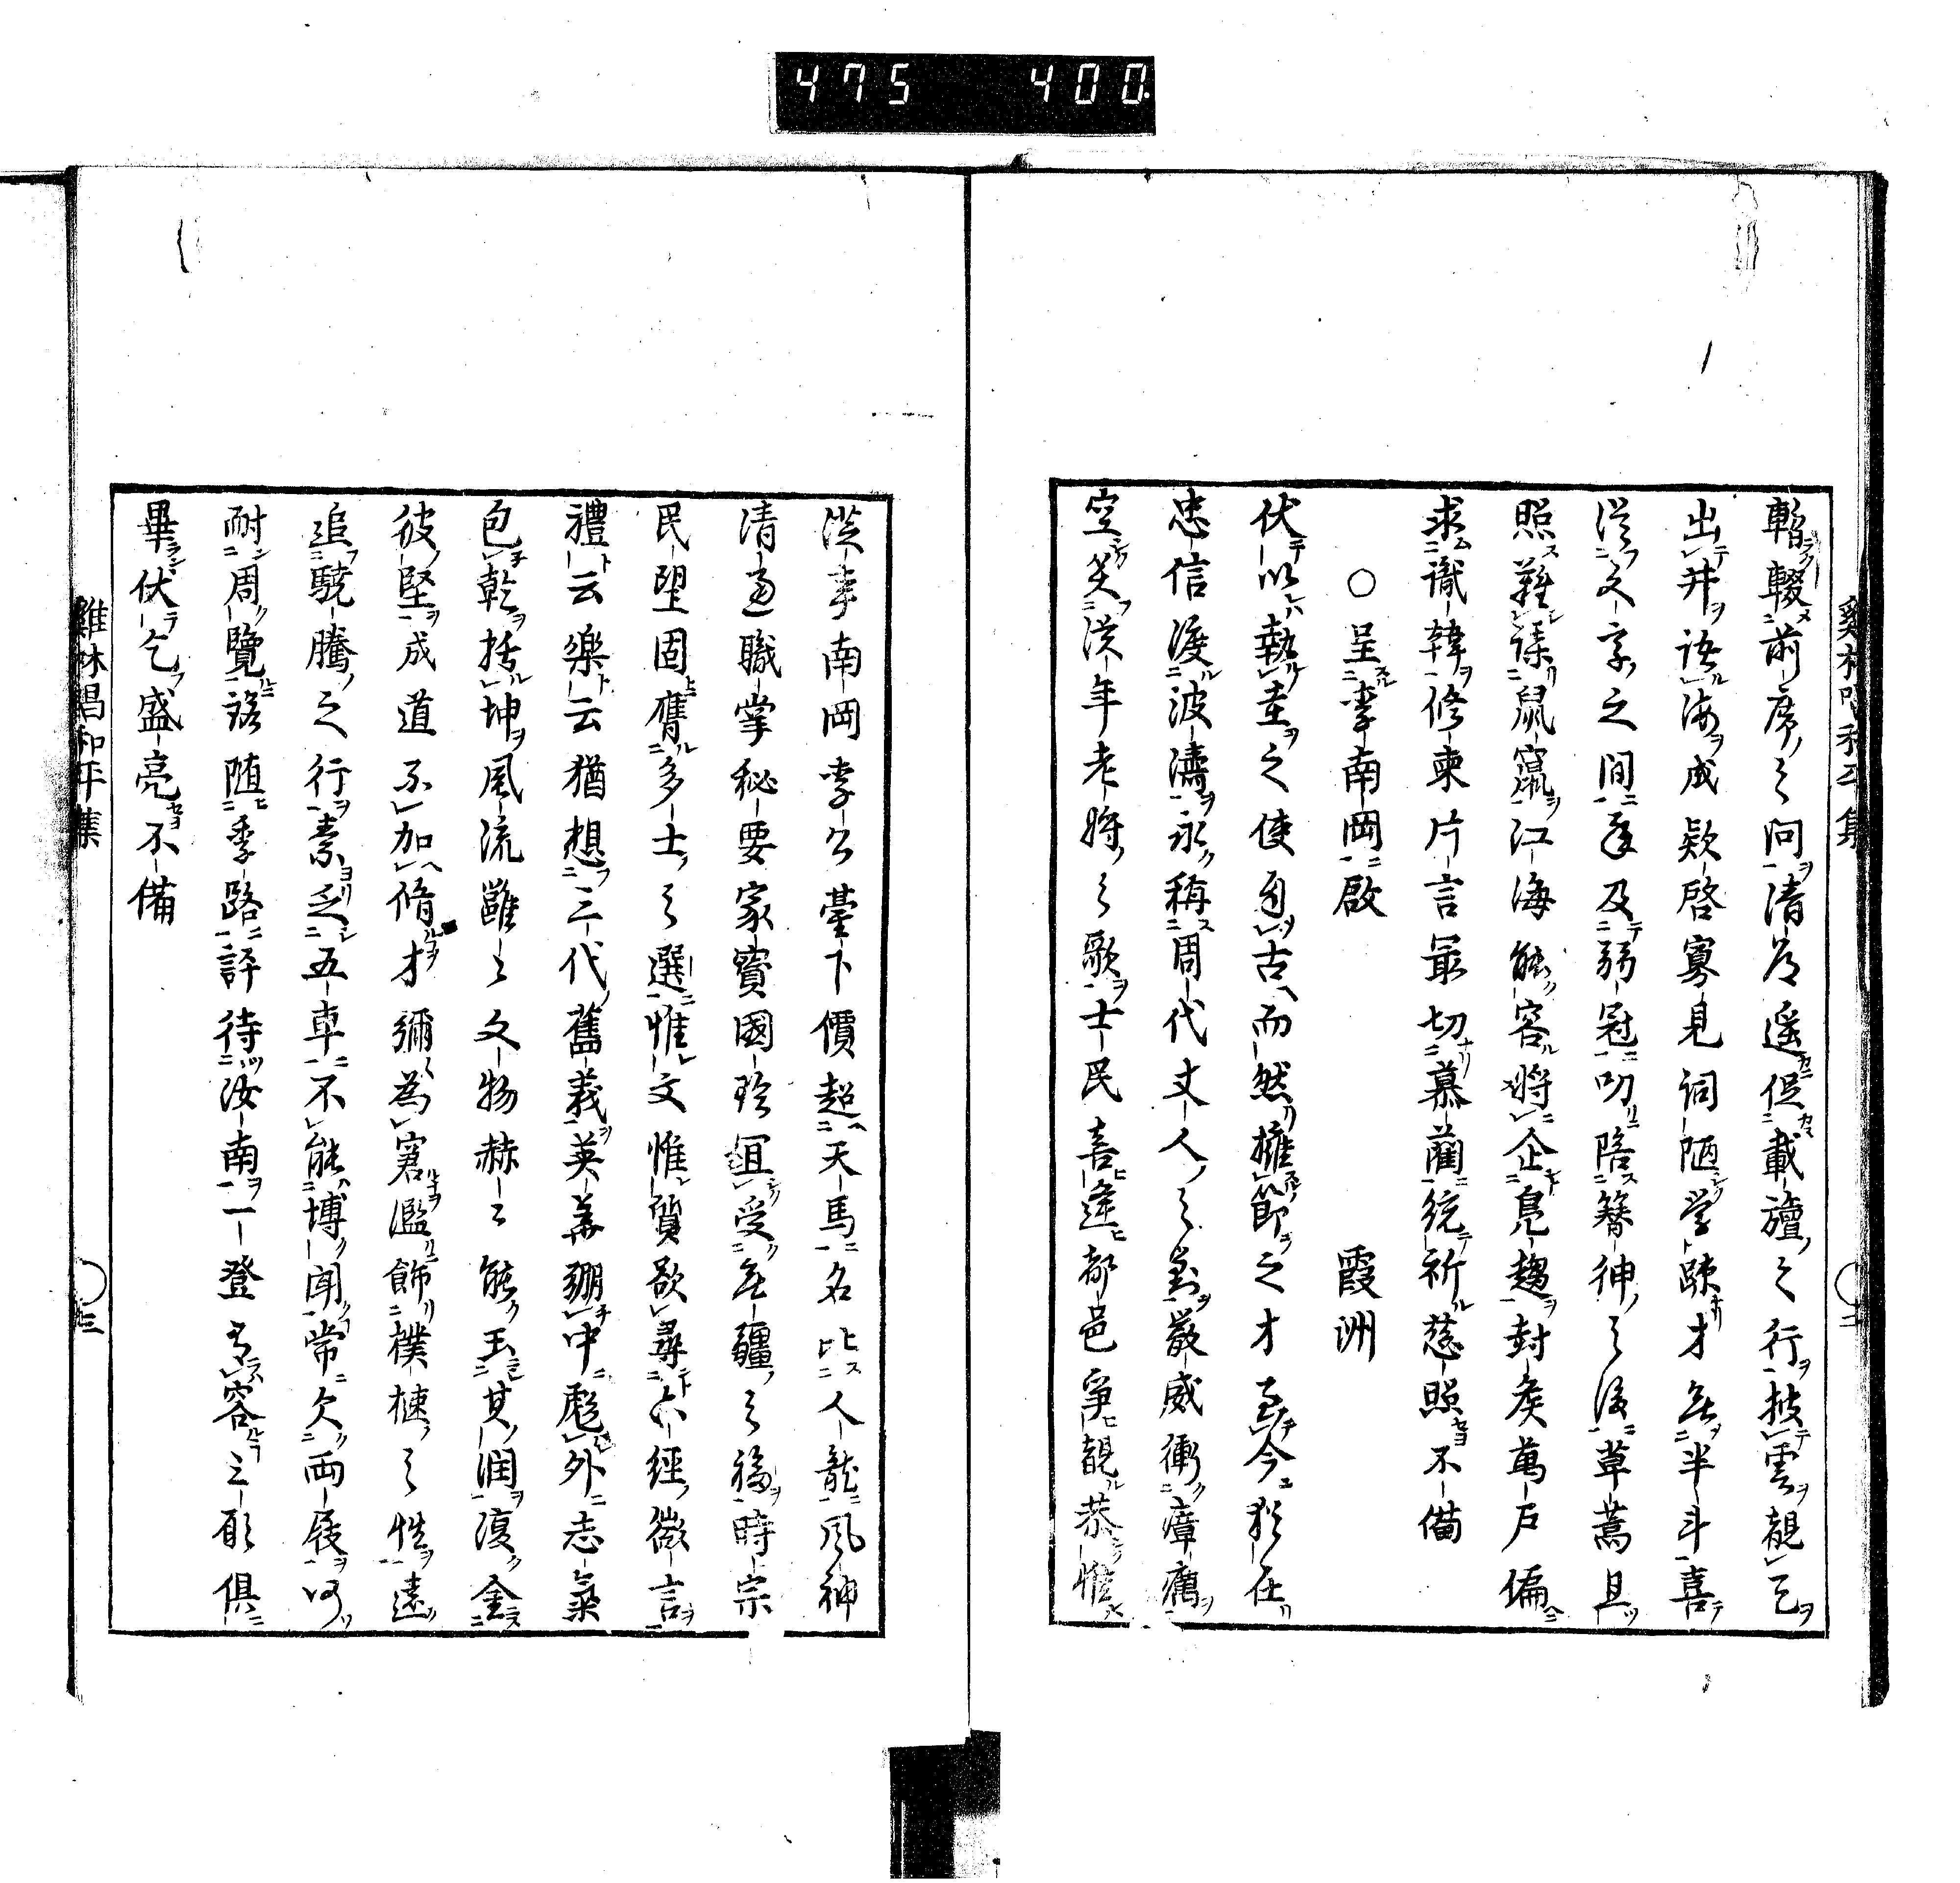 475 400
暫輟前席之問清光遥促載旝之行披雲覩天
出井語海成欵啓寡見詞陋学踈才無半斗喜
從文字之間年及弱冠叨陪簪紳之後草蒿且
照難謀鼠竄江海能容將企鳧趨封矦萬戸偏
求識韓修柬片言最切慕藺統祈慈照不備
○呈李南岡啟 霞洲
伏以執圭之使自古而然擁節之才至今猶在
忠信渡波濤永稱周代丈人之對嚴威衝瘴癘
空笑漢年老將之歌士民喜逢都邑爭覩恭惟
從事南岡李公臺下價超天馬名比人龍風神
清通職掌秘要家寶國珍宜受無疆之福時宗
民望固膺多士之選惟文惟質欲尋六經微言
禮云樂云猶想三代舊義英華弸中彪外志氣
包乾括坤風流雖〻文物赫〻能玉其潤復金
彼堅成道不加脩才彌為窘濫飾樸樕之性遠
追驍騰之行素乏五車不能博聞常欠両屐何
耐周覽路随季路評待汝南一登為容之願俱
畢伏乞盛亮不備
雞林唱和平集